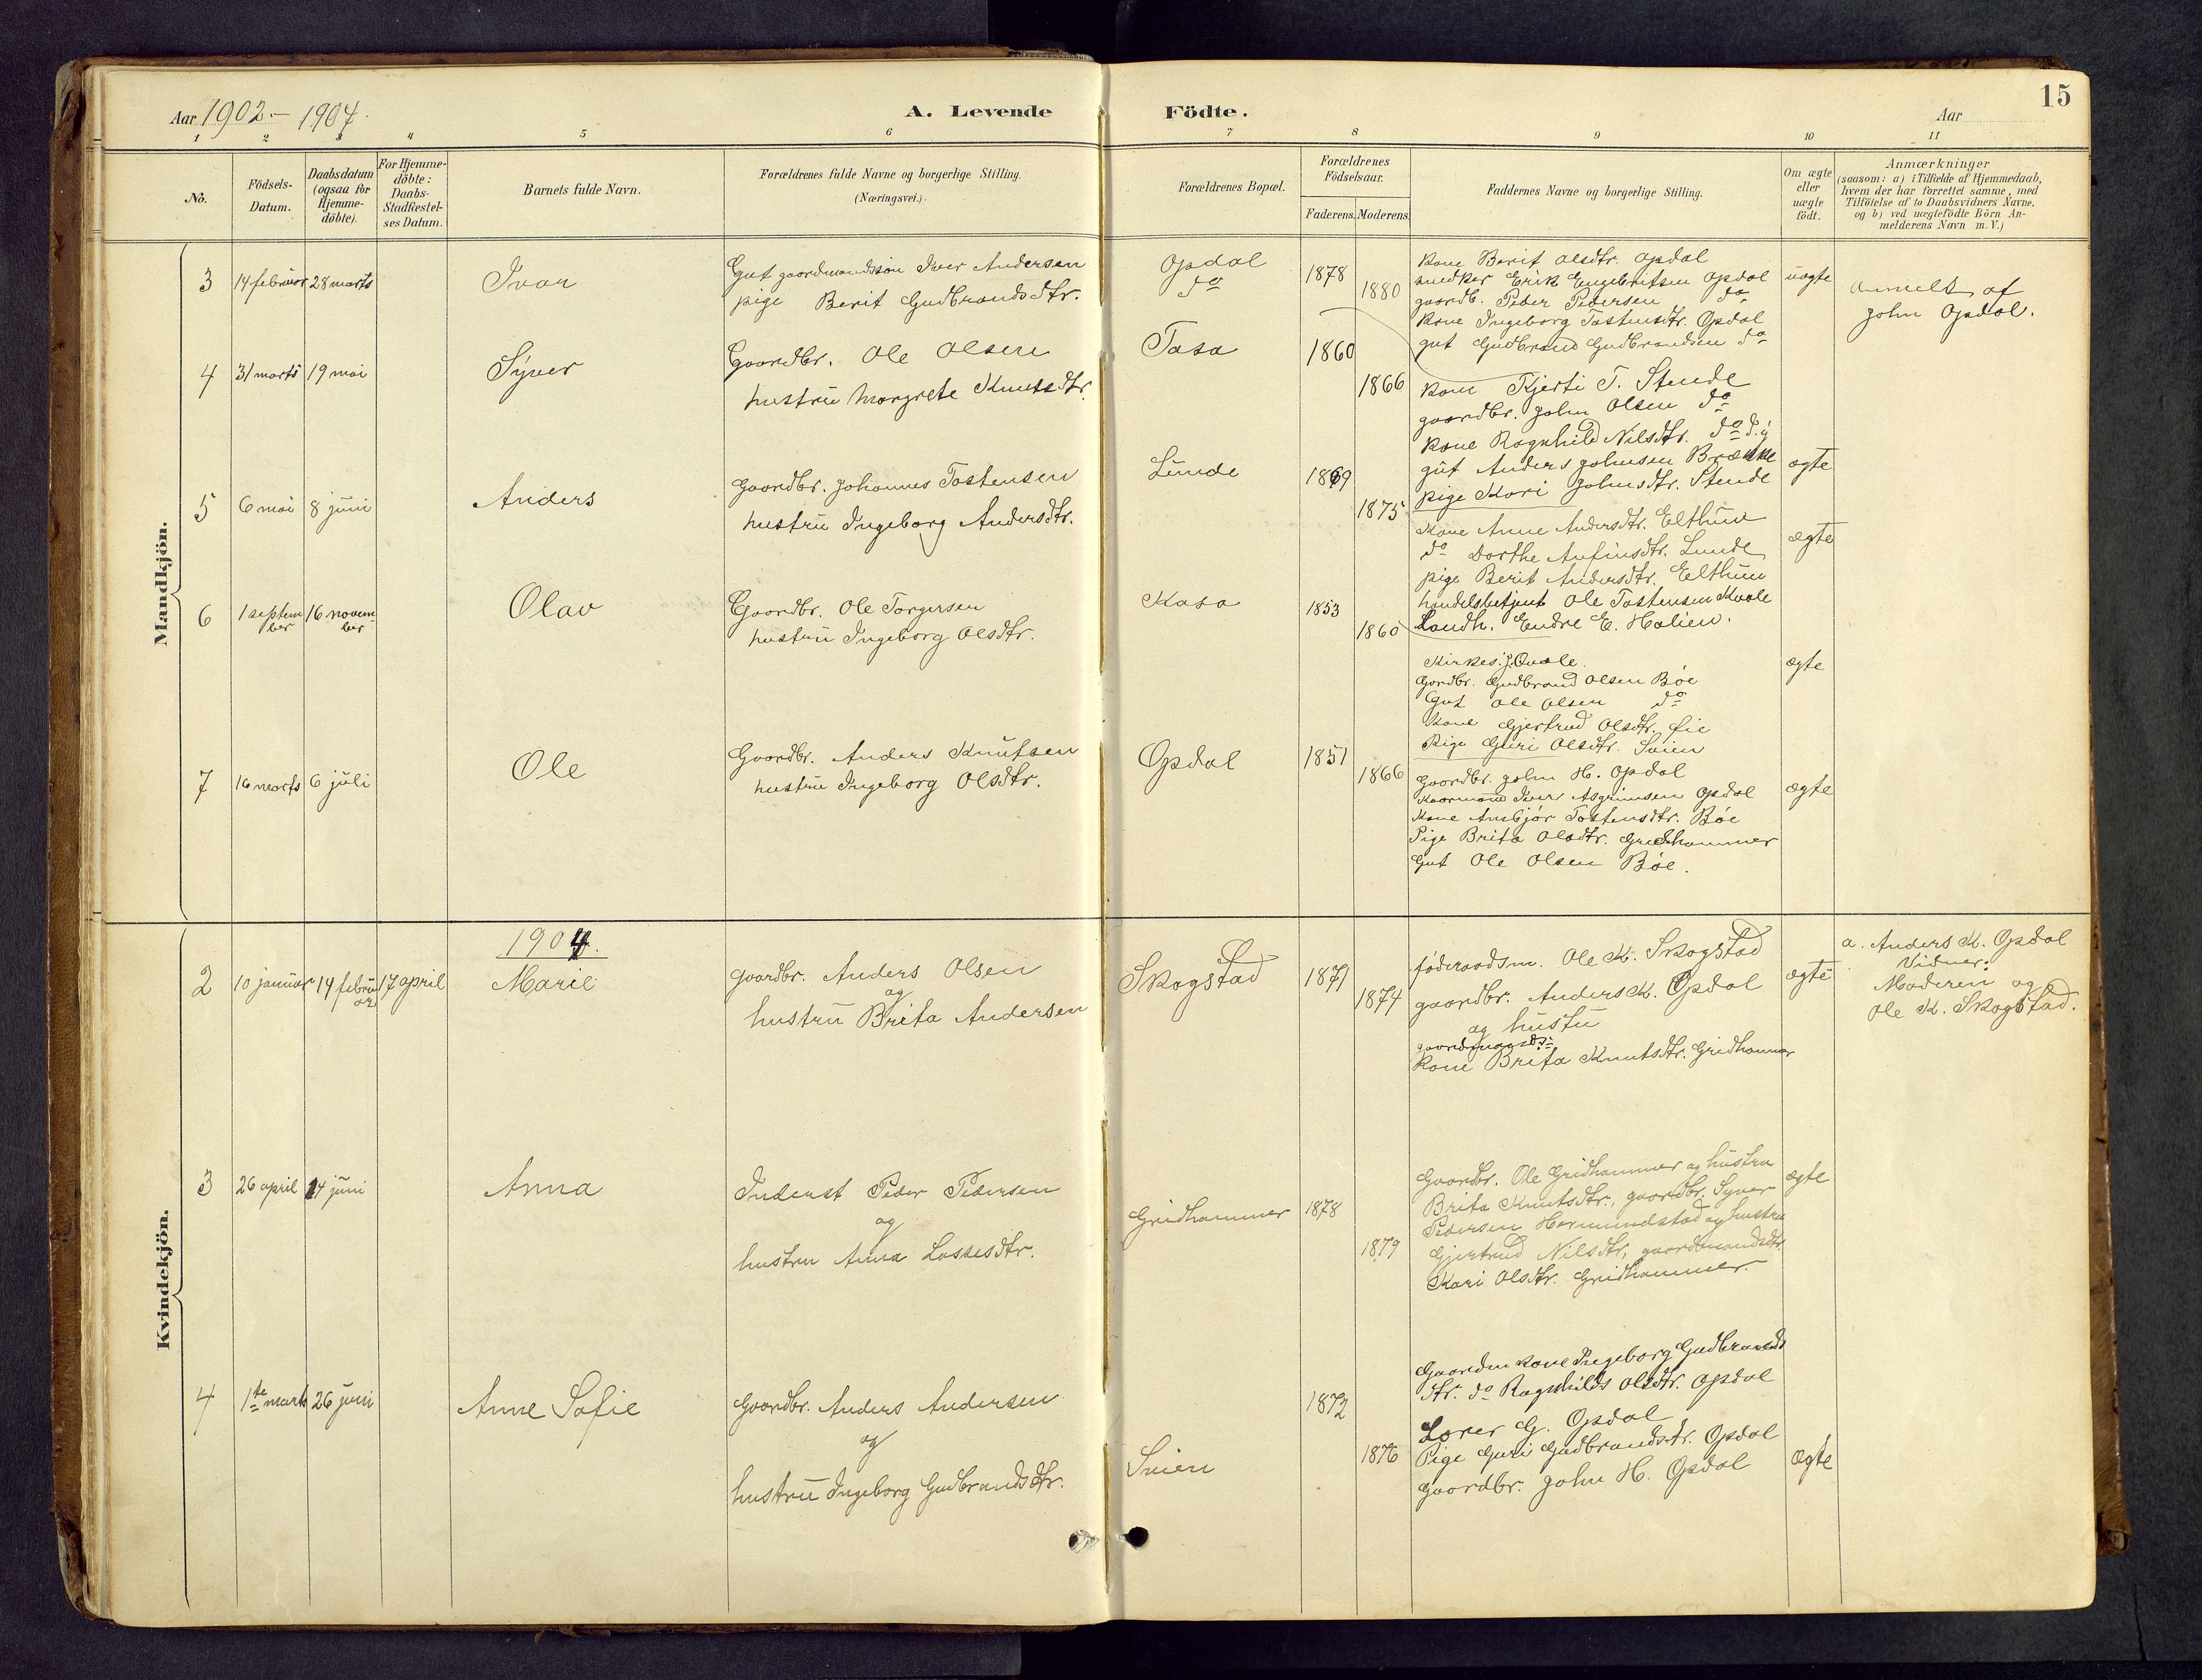 Aar 1902.- 1904.
A. Levende
Födte.
Aar
15
1 2 3 4 5 6 7 8 9 10 11
No.
Födsels-
Datum.
Daabsdatum
(ogsaa for
Hjemme-
döbte).
For Hjemme-
döbte:
Daabs-
Stadfæstel-
ses Datum.
Barnets fulde Navn.
Forældrenes fulde Navne og borgerlige Stilling.
(Næringsvei.)
Forældrenes Bopæl.
Forældrenes
Födselsaar.
Faderens. Moderens.
Faddernes Navne og borgerlige Stilling.
Om ægte
eller
uægte
födt.
Anmærkninger
(saasom: a) i Tilfælde af Hjemmedaab,
hvem der har forrettet samme, med
Tilföielse af to Daabsvidners Navne.
og b) ved uægtefödte Börn An-
melderens Navn m. V.)
Mandkjön.
3 14 februar 28 marts
Ivar
Gut gaardmandssön Iver Andersen
pige Berit Gudbrandsdtr.
Opdal
do
1878
1880
Kone Berit Olsdtr. Opdal
snedker Erik Engebritsen Opdal
gaardb. Peder Pedersen do
Kone Ingeborg Tostensdtr. Opdal
gut Gudbrand Gudbrandsen do
uægte
Anmeldt af
John Opdal.
4 31 marts 19 mai
Syver
Gaardbr. Ole Olsen
hustru Margrete Knutsdtr.
Tasa
1860
1866
Kone Kjersti T. Stende
gaardbr. John Olsen do
Kone Ragnhild Nilsdtr. do d.y
gut Anders Johnsen Brække
pige Kari Johnsdtr. Stende
ægte
5 6 mai 8 juni
Anders
Gaardbr. Johannes Tostensen
hustru Ingeborg Andersdtr.
Lunde
1869
1875
Kone Anne Andersdtr. Elthun
do Dorthe Anfinsdtr. Lunde
pige Berit Andersdtr. Elthun
handelsbetjent Ole Tostensen Kvale
Landh. Endre E. Halien.
ægte
6 1 septem
ber 16 novem
ber
Olav
Gaardbr. Ole Torgersen
hustru Ingeborg Olsdtr.
Kasa
1853
1860
Kirkes. J. Qvale.
Gardbr. Gudbrand Olsen Böe
Gut Ole Olsen do
Kone Gjertrud Olsdtr.
Pige Guri Olsdtr. Svien
ægte
7 16 marts 6 juli
Ole
Gaardbr. Anders Knutsen
hustru Ingeborg Olsdtr.
Opdal
1851
1866
Gaardbr. John H. Opdal
Kaarmand Iver Asgrimsen Opdal
Kone Anbjör Tostensdtr. Böe
Pige Brita Olsdtr. Gridhammer
Gut Ole Olsen Böe.
ægte
Kvindekjön.
1904.
2 10 januar 14 febru
ar 17 april
Marie
gaardbr. Anders Olsen
og
hustru Brita Andersen
Skogstad
1871
1874
föderaadsm. Ole K. Skogstad
gaardbr. Anders K. Opdal
og hustu
gaardmands
Kone Brita Knutsdtr. Gridhammer
ægte
a. Anders K. Opdal
Vidner:
Moderen og
Ole K. Skogstad.
3 26 april 14 juni
Anna
Inderst Peder Pedersen
og
hustru Anna Lassesdtr.
Gridhammer
1878
1879
Gaardbr. Ole Gridhammer og hustru
Brita Knutsdtr., gaardbr. Syver
Pedersen Hermundstad og hustru
Gjertrud Nilsdtr, gaardmandsdtr.
Kari Olsdtr. Gridhammer.
ægte
4 1te marts 26 juni
Anne Sofie
Gaardbr. Anders Andersen
og
hustru Ingeborg Gudbrandsdtr.
Svien
1872
1876
Gaardm kone Ingeborg Gudbrands
dtr. do Ragnhilds Olsdtr. Opdal
Lærer G. Opdal
Pige Guri Gudbrandsdtr. Opdal
gaardbr. John H. Opdal
Ægte